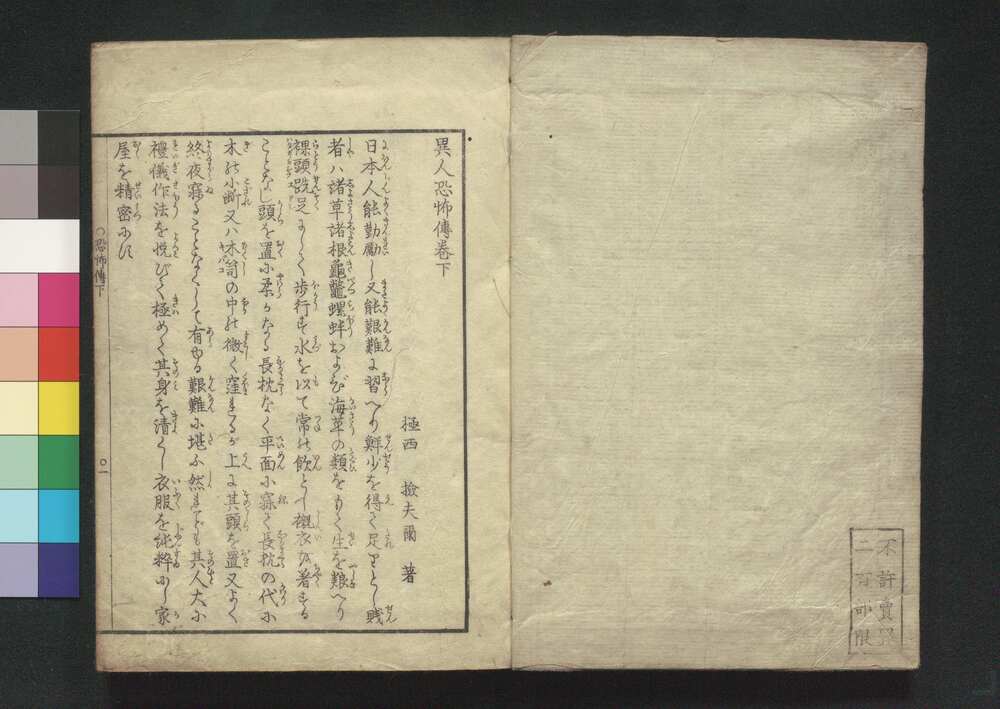 不許賣買
二百部限
異人恐怖傳巻下
極西 撿夫爾 著
日本人能勤勵し又能艱難に習へり鮮少を得て足りとし賤
者ハ諸草諸根龜鼈螺蚌および海草の類をもて生を養へり
裸頭跣足にして歩行す水を以て常の飲とし襯衣を着する
ことなし頭を置に柔かなる長枕なく平面に寐て長枕の代に
木の小断又ハ木笥の中の微く窪きるが上に其頭を置又よく
終夜寐ることなくして有ゆる艱難に堪ふ然れども其人大に
禮儀作法を悦びて極めて其身を清くし衣服を純粋にし家
屋を精密にす
恐怖傳下
〇一